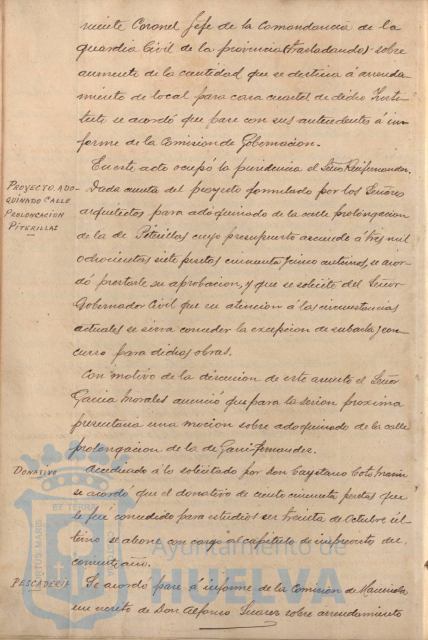 niente Coronel Jefe de la Comandancia de la
guardia Civil de la provincia (trasladando) sobre
aumento de la cantidad que se destina á arrenda-
miento de local para casa cuartel de dicho Insti-
tuto se acordó que pase con sus antecedentes á in-
forme de la Comision de Gobernacion.
En este acto ocupó la presidencia el Señor
PROYECTO ADO-
QUINADO CALLE
PROLONGACION
PITERILLAS
Dada cuenta del proyecto formulado por los Señores
arquitectos para adoquinado de la calle prolongacion
de la de Piterillas cuyo presupuesto asciende á tres mil
ochocientas siete pesetas cincuenta y cinco centimos, se acor-
dó prestarle su aprobacion, y que se solicite del Señor
Gobernador Civil que en atencion á las circunstancias
actuales se sirva conceder la excepcion de subasta y con-
curso para dichas obras.
Con motivo de la discusion de este asunto el Señor
Garcia Morales anunció que para la sesion proxima
presentaria una mocion sobre adoquinado de la calle
prolongacion de la de
DONATIVO
Accediendo á lo solicitado por Don Cayetano Coto
se acordó que el donativo de ciento cincuenta pesetas que
le fué concedido para estudios en treinta de Octubre úl-
timo se abone con cargo al capitulo de imprevistos del
corriente año.
PESCADERIA
Se acordó pase á informe de la Comision de Hacienda
un escrito de Don Alfonso Suarez sobre arrendamiento
Ayuntamiento de
HUELVA